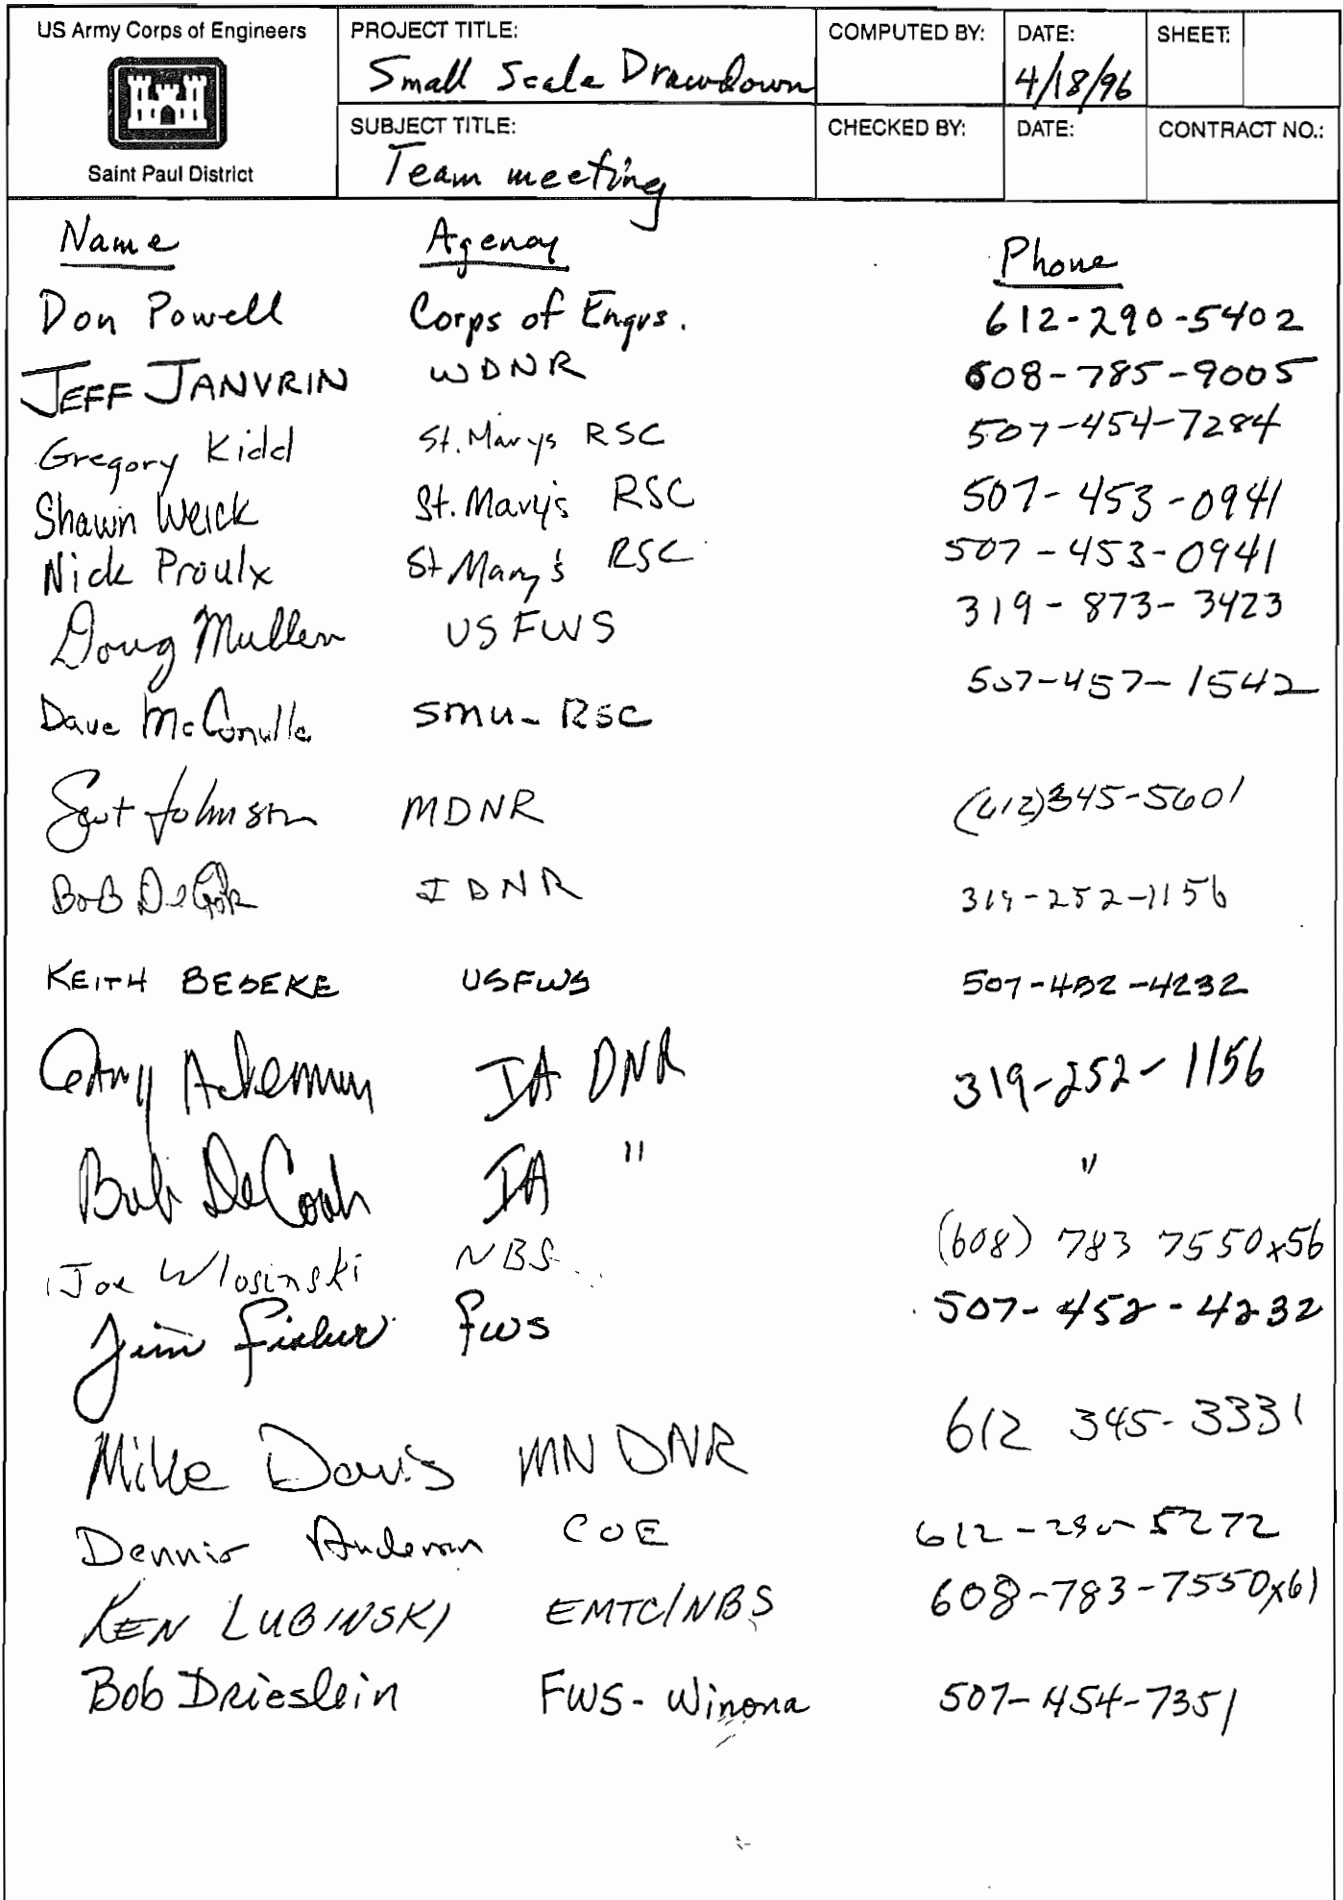 US Army Corps of Engineers
Saint Paul District
PROJECT TITLE:
Small Scale Drawdown
COMPUTED BY:
DATE:
4/18/96
SHEET:
SUBJECT TITLE:
Team meeting
CHECKED BY:
DATE:
CONTRACT NO.:
Name Agency Phone
Don Powell Corps of Engrs. 612-290-5402
JEFF JANVRIN WDNR 608-785-9005
Gregory Kidd St. Marys RSC 507-454-7284
Shawn Weick St. Mary's RSC 507-453-0941
Nick Proulx St Mary's RSC 507-453-0941
Doug Mullen USFWS 319-873-3423
Dave McConville SMU- RSC 507-457-1542
Scot Johnson MDNR (612)345-5601
Bob IDNR 319-252-1156
KEITH BESEKE USFWS 507-452-4232
Gary Ackerman IA DNR 319-252-1156
Bob DeCook IA " "
Joe Wlosinski NBS (608) 783 7550x56
Jim Fisher fws 507-452-4232
Mike Davis MN DNR 612 345-3331
Dennis Anderson COE 612-290-5272
KEN LUBINSKI EMTC/NBS 608-783-7550x61
Bob Drieslein FWS-Winona 507-454-7351